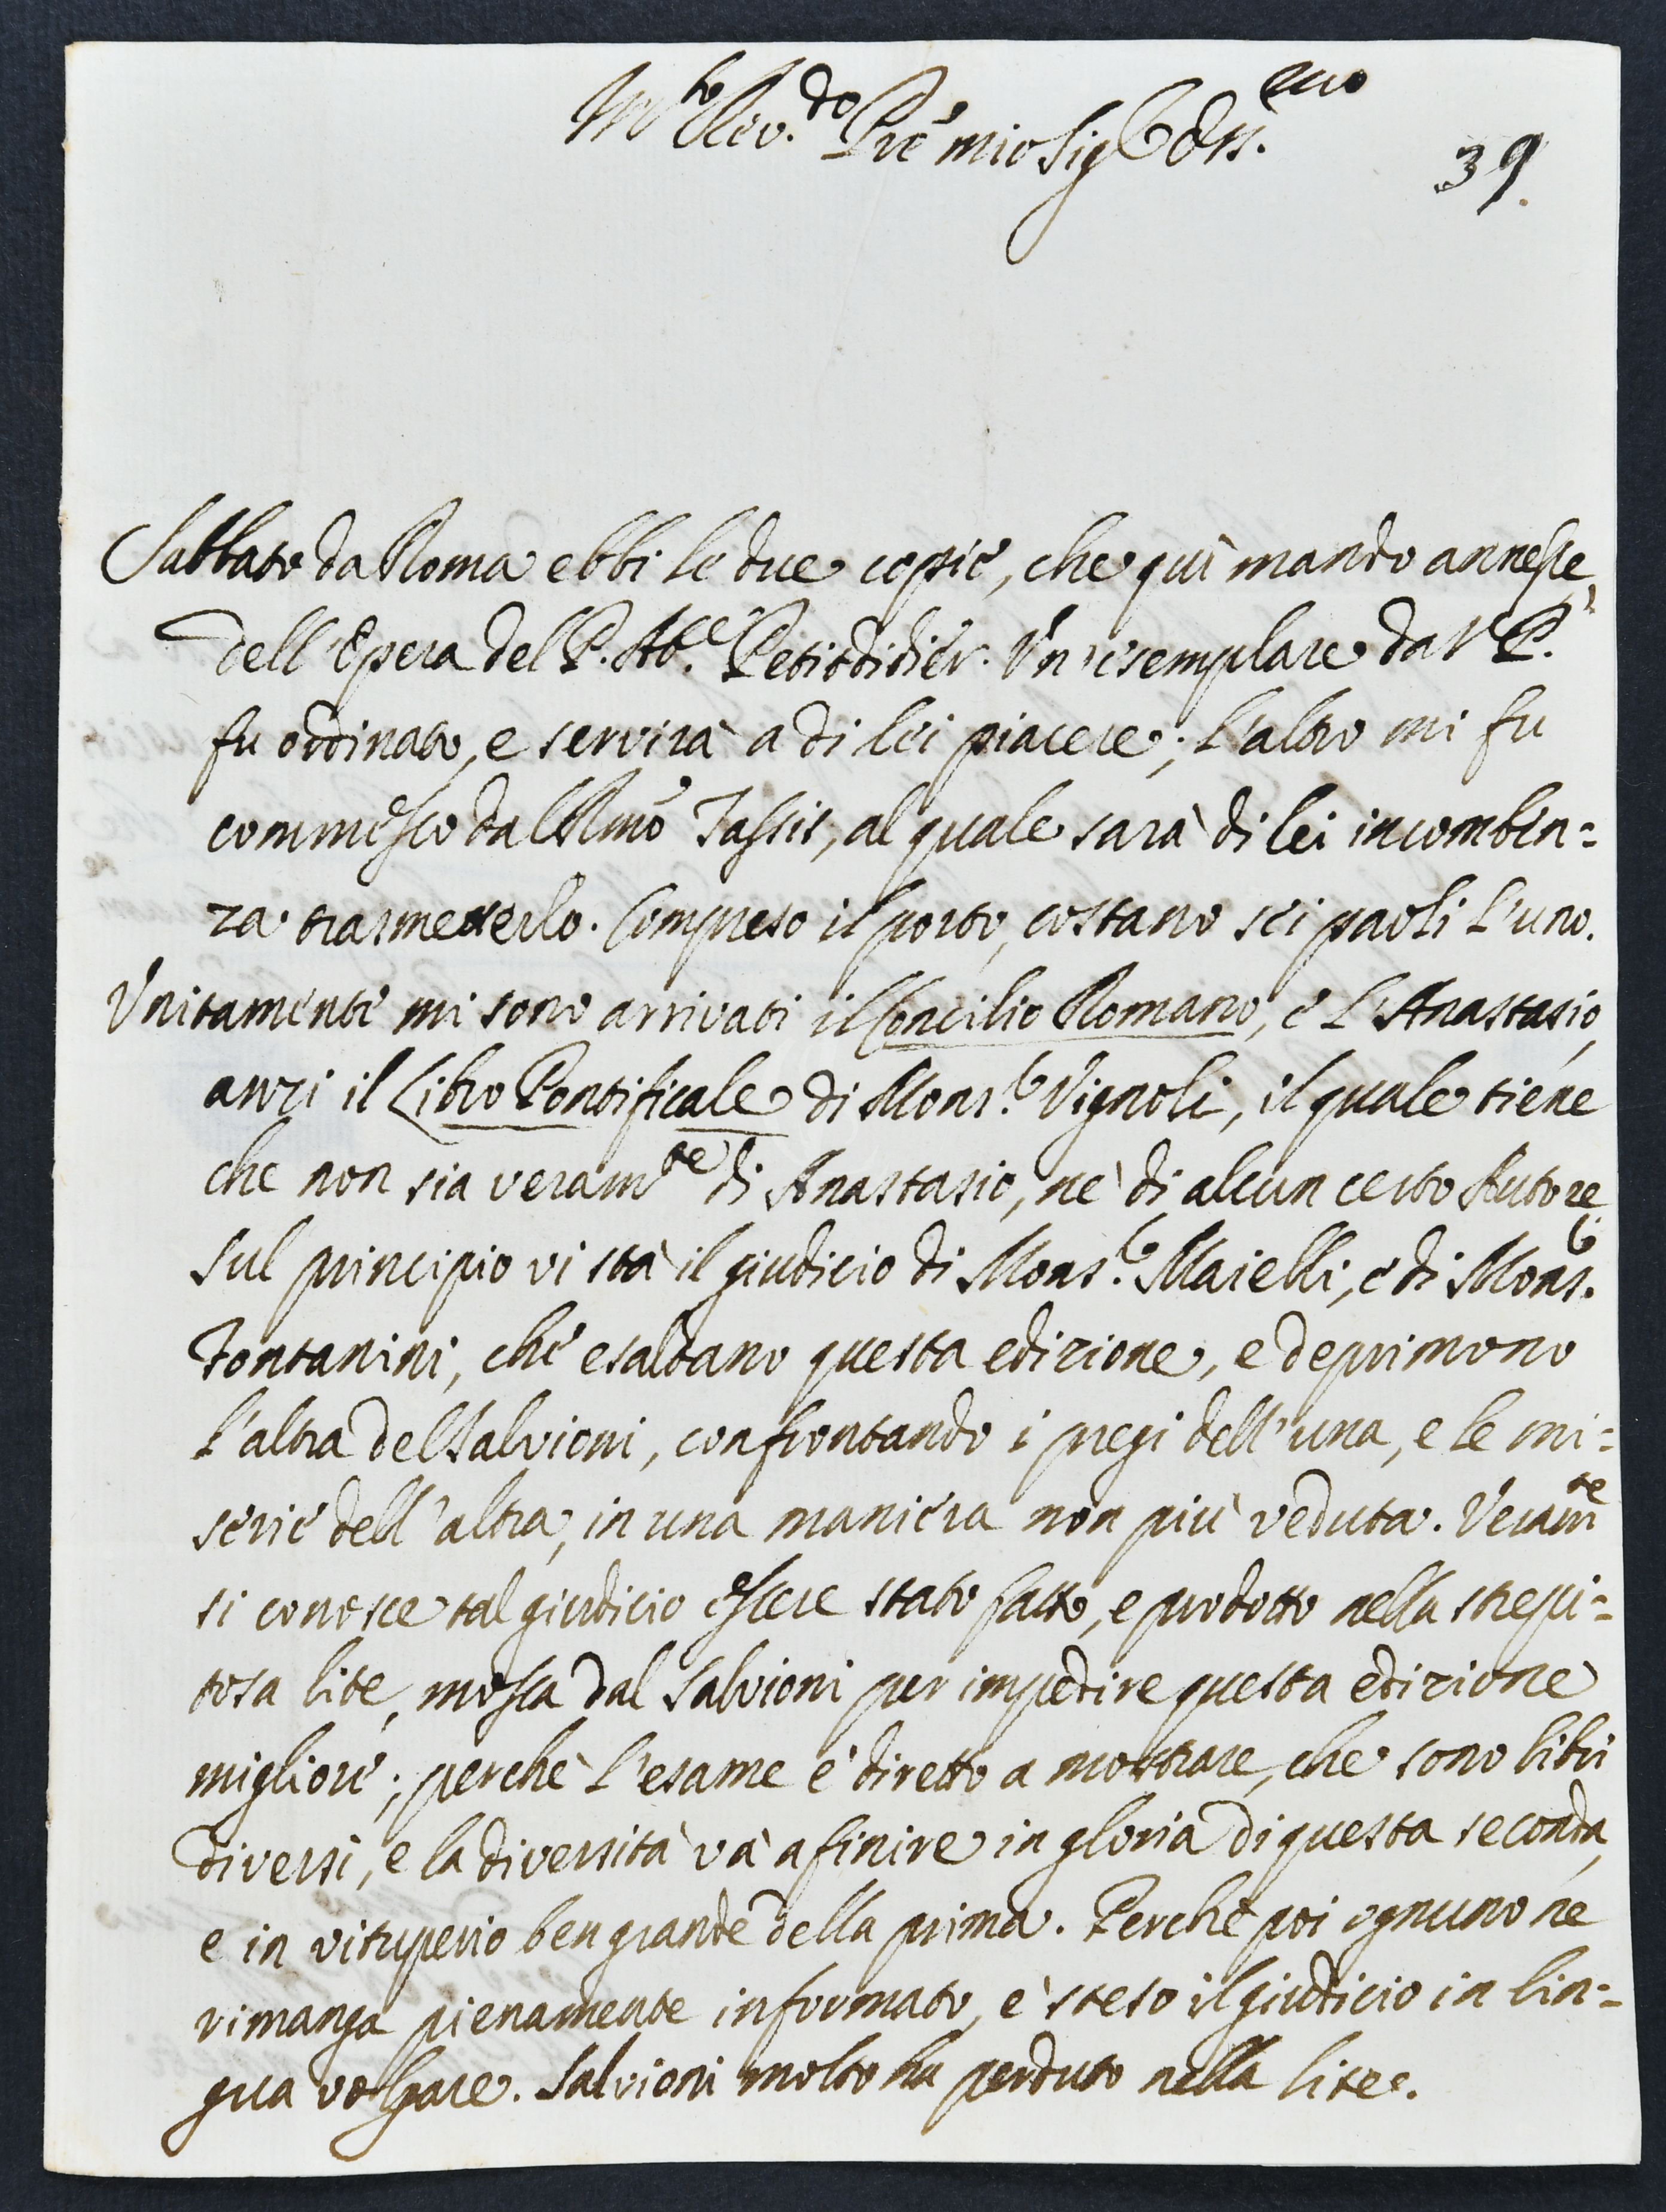 M.to Rev.do Pre mio Sig.r Oss.mo
39.
Sabbato da Roma ebbi le due copie, che quì mando annesse,
dell'Opera del P. Ab.e Petitdidier. Un'esemplare da V. P.
fu ordinato, e servirà a di lei piacere; l'altro mi fu
commesso dal Rmo Tassis, al quale sarà di lei incomben=
za trasmetterlo. Compreso il porto, costano sei paoli l'uno.
Unitamente mi sono arrivati il Concilio Romano, e l'Anastasio,
anzi il Libro Pontificale di Mons.r Vignoli, il quale tiene
che non sia veram.te di Anastasio, nè di alcun certo Autore.
Sul principio vi stà il giudicio di Mons.r Maielli, e di Mons.r
Fontanini, che esaltano questa edizione, e deprimono
l'altra del Salvioni, confrontando i pregi dell'una, e le mi=
serie dell'altra, in una maniera non più veduta. Veram.te
si conosce tal giudicio essere stato fatto, e prodotto nella strepi=
tosa lite, mossa dal Salvioni per impedire questa edizione
migliore; perchè l'esame è diretto a mostrare, che sono libri
diversi, e la diversità và a finire in gloria di questa seconda,
e in vituperio ben grande della prima. Perchè poi ognuno ne
rimanga pienamente informato, è steso il giudicio in lin=
gua volgare. Salvioni molto ha perduto nella lite.